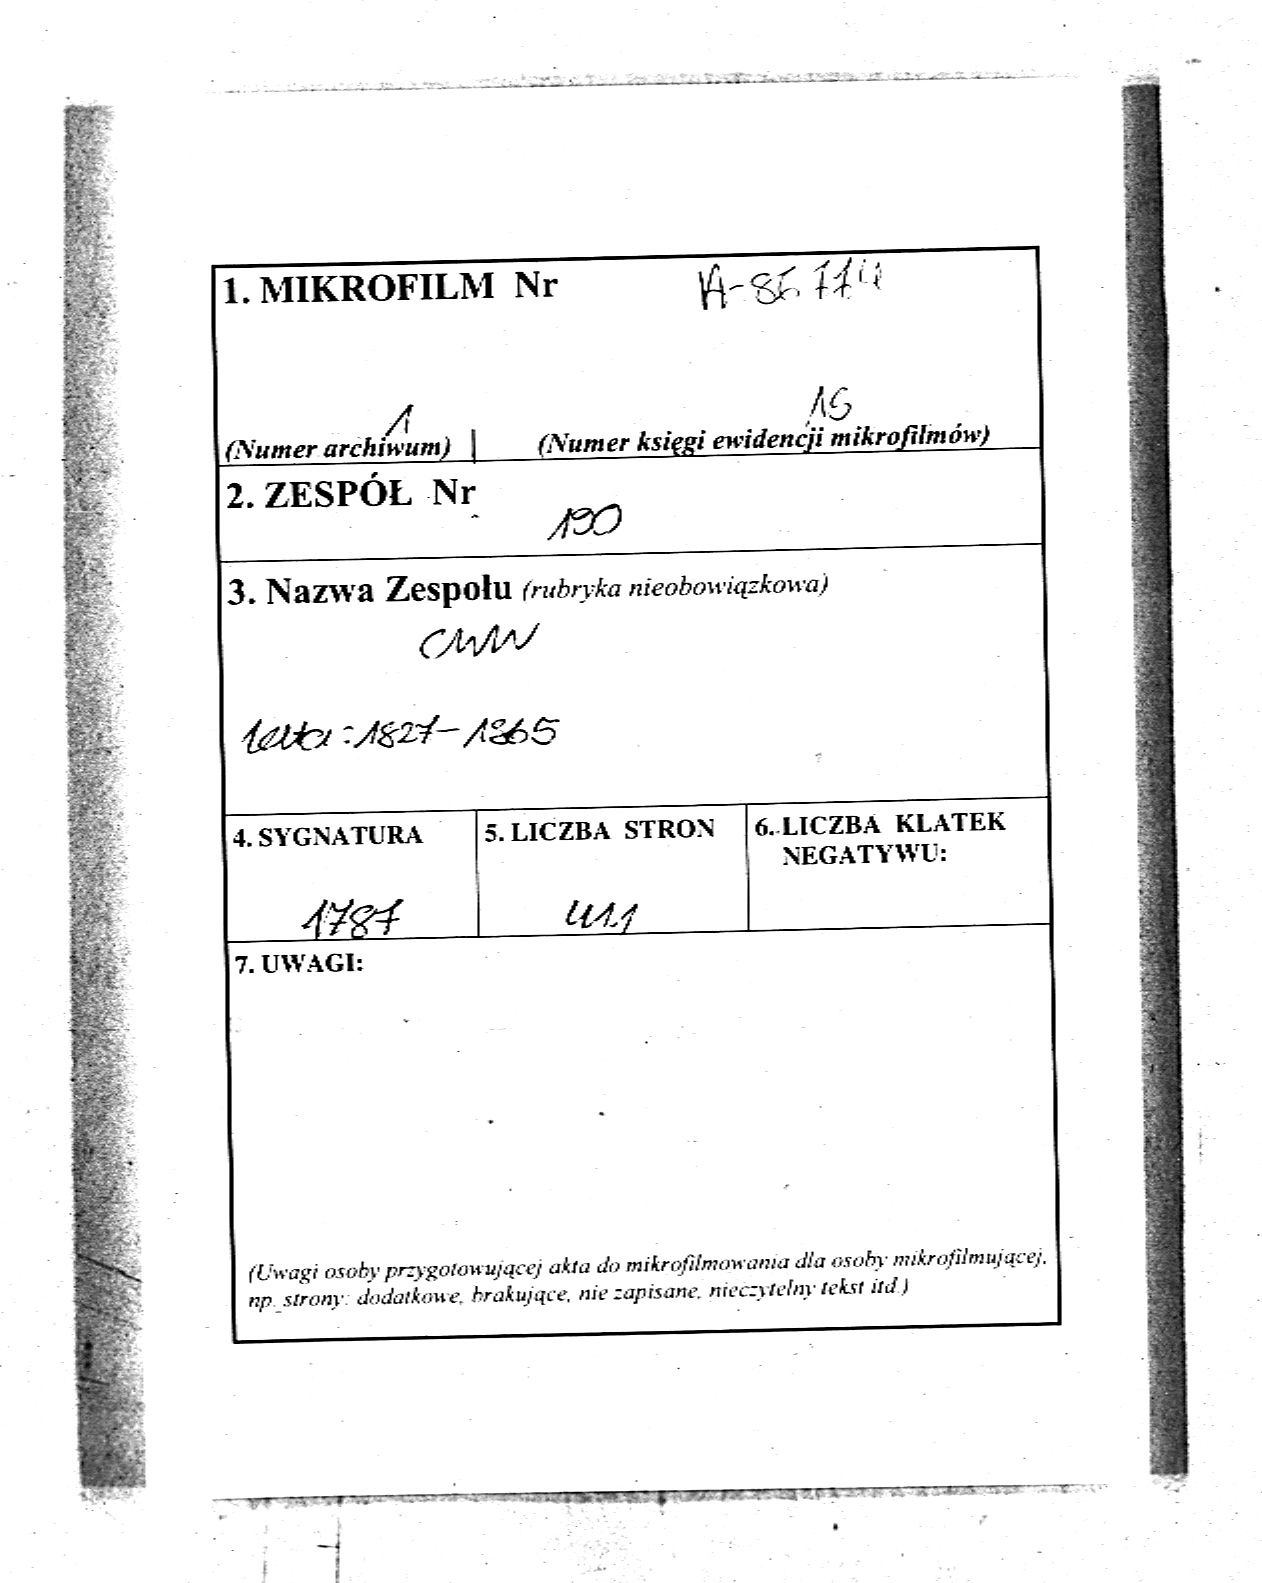 1. MIKROFILM Nr
1 15
(Numer archiwum) | (Numer księgi ewidencji mikrofilmów)
2. ZESPÓŁ Nr
190
3. Nazwa Zespołu (rubryka nieobowiązkowa)
CWW
lata: 1827-1865
4. SYGNATURA 5. LICZBA STRON 6. LICZBA KLATEK
NEGATYWU:
1787 411
7. UWAGI:
(Uwagi osoby przygotowującej akta do mikrofilmowania dla osoby mikrofilmującej,
np. strony: dodatkowe, brakujące, nie zapisane, nieczytelny tekst itd.)